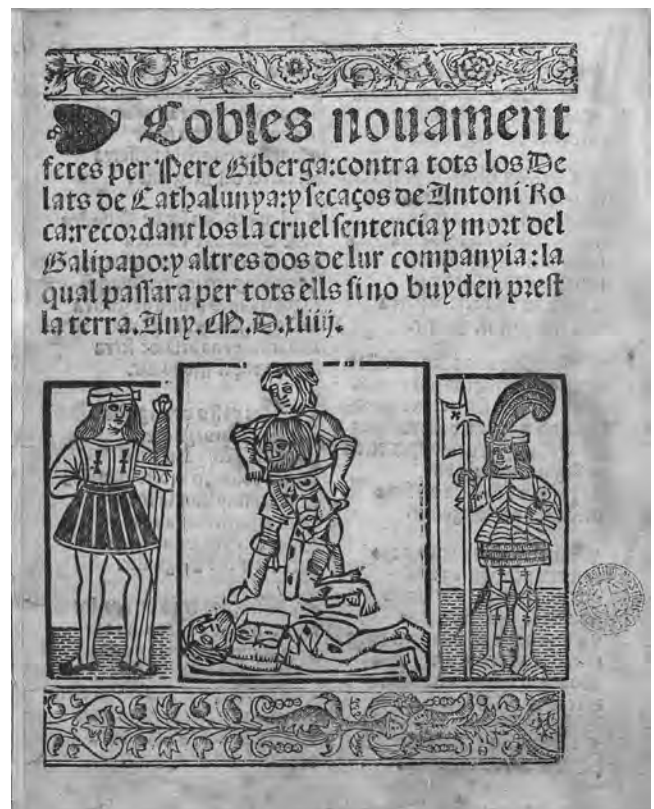 Cobles nouament
fetes per Pere Giberga:contra tots los De
lats de Cathalunya:y secaços de Antoni Ro
ca:recordant los la cruel sentencia y mort del
Galipapo:y altres dos de lur companyia:la
qual passara per tots ells si no buyden prest
la terra.Any.M.D.xliiij.